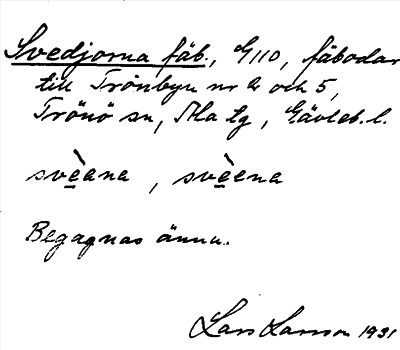 Svedjorna fäb., G 110, fäbodar
till Trönbyn nr 2 och 5,
Trönö sn, Ala tg, Gävleb. l.
svèana, svèena
Begagnas ännu.
Lars Larsson 1931